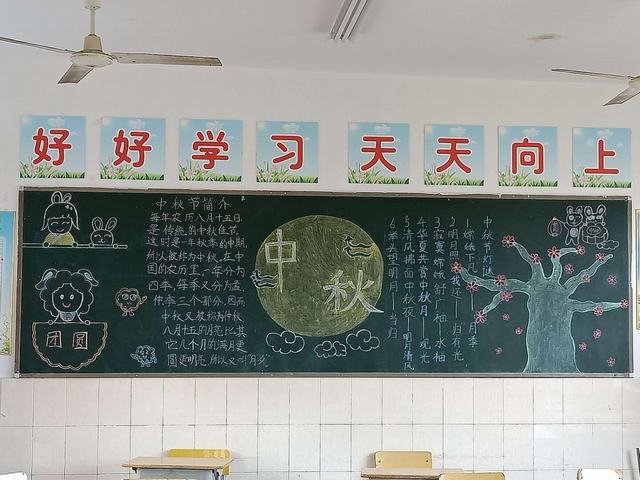 好好学习 天天向上
中秋节简介
每年农历八月十五日,
是传统的中秋佳节.
这时是一年秋季的中期,
所以被称为中秋.在中
国的农历里,一年分为
四季,每季又分为孟、
仲、季三个部分,因而
中秋又被称为仲秋
八月十五的月亮比其
它几个月的满月更
圆更明亮,所以又叫"月夕"
团圆
中秋
中秋节灯谜
1.嫦娥下月——月季
2.明月照我还——归有光
3.寂寞嫦娥舒广袖—水袖
4.华夏共赏中秋月—观光
5.清风拂面中秋夜—明月清风
6.举头望明月——当归